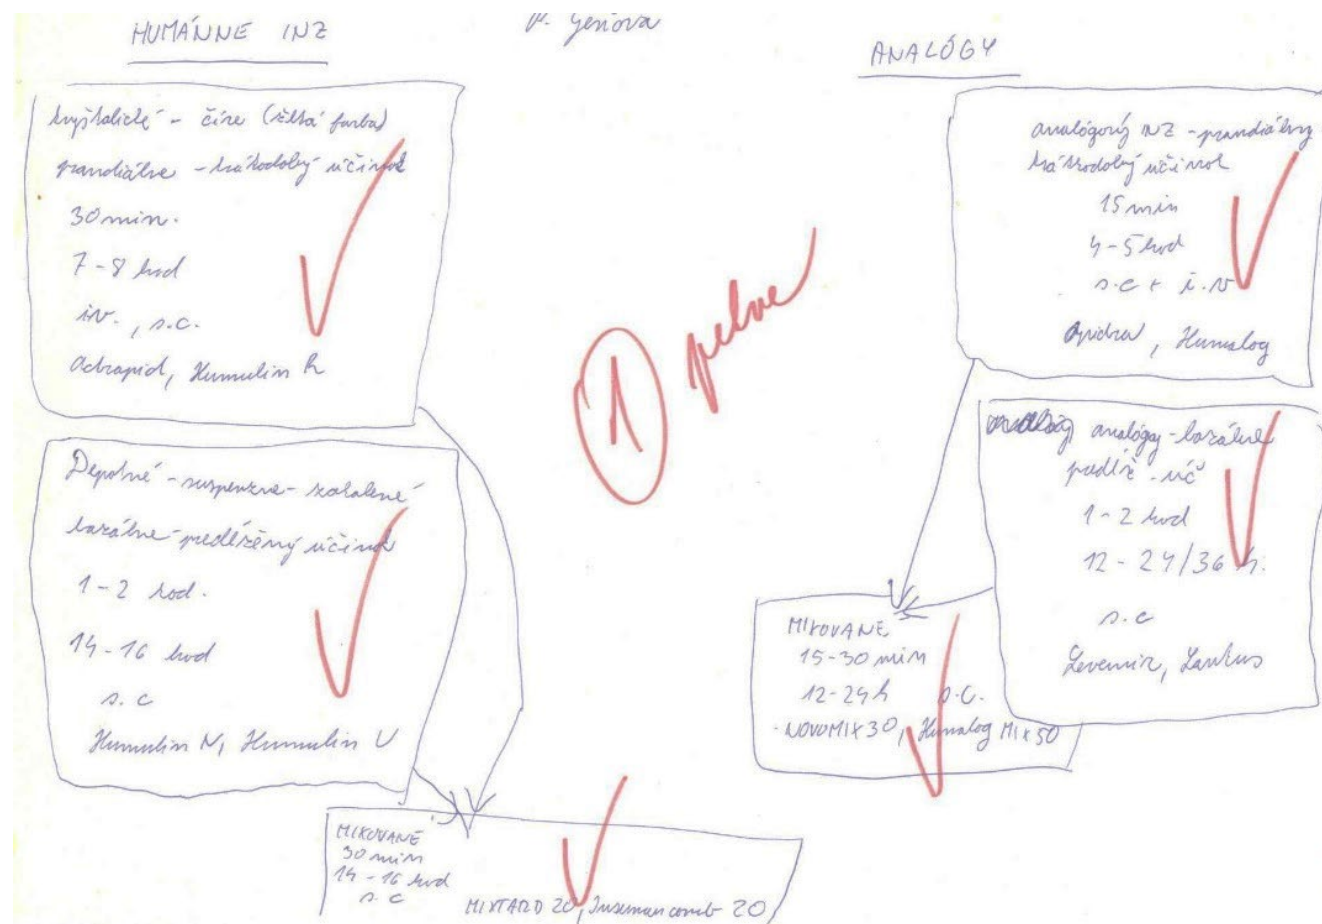 HUMÁNNE INZ
kryštalické - číre (žltá farba)
prandiálne - krátkodobý účinok
30 min.
7-8 hod
i.v., s.c.
Actrapid, Humulin R
Depotné - suspenzné - zakalené
bazálne - predĺžený účinok
1-2 hod.
14-16 hod
s.c
Humulin N, Humulin U
MIXOVANÉ
30 min
14-16 hod
s.c
MIXTARD 20, Insuman comb 20
1 pekne
ANALÓGY
analógový INZ - prandiálny
krátkodobý účinok
15 min
4-5 hod
s.c + i.v
Apidra, Humalog
analógy - bazálne
predĺž. úč
1-2 hod
12-24/36 h.
s.c
Levemir, Lantus
MIXOVANÉ
15-30 min
12-24h s.c.
NOVOMIX 30, Humalog MIX 50